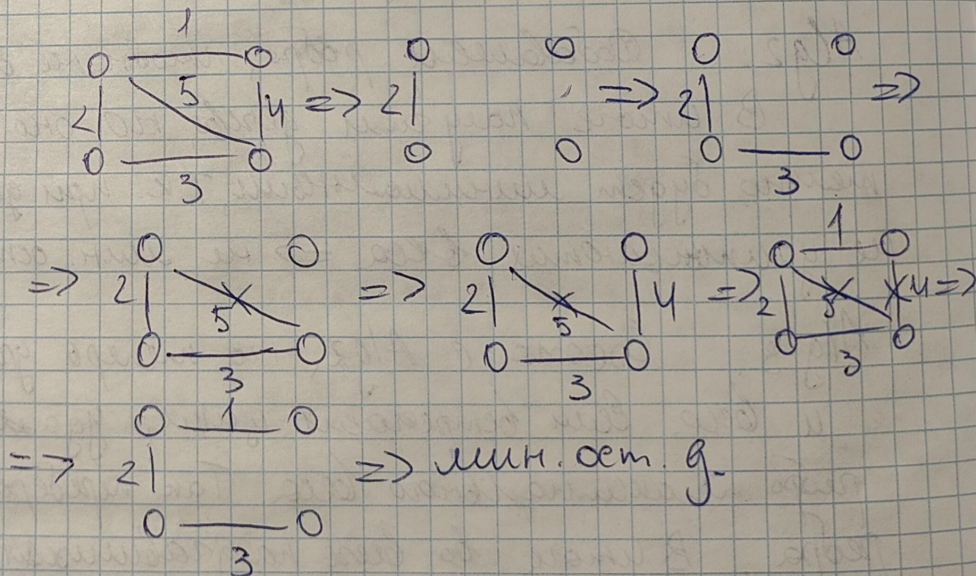 1
5
2 4 => 2 => 2 =>
3 3
=> 2 5 => 2 5 4 => 1 2 5 4 =>
3 3 3
1
=> 2 => мин. ост. д.
3